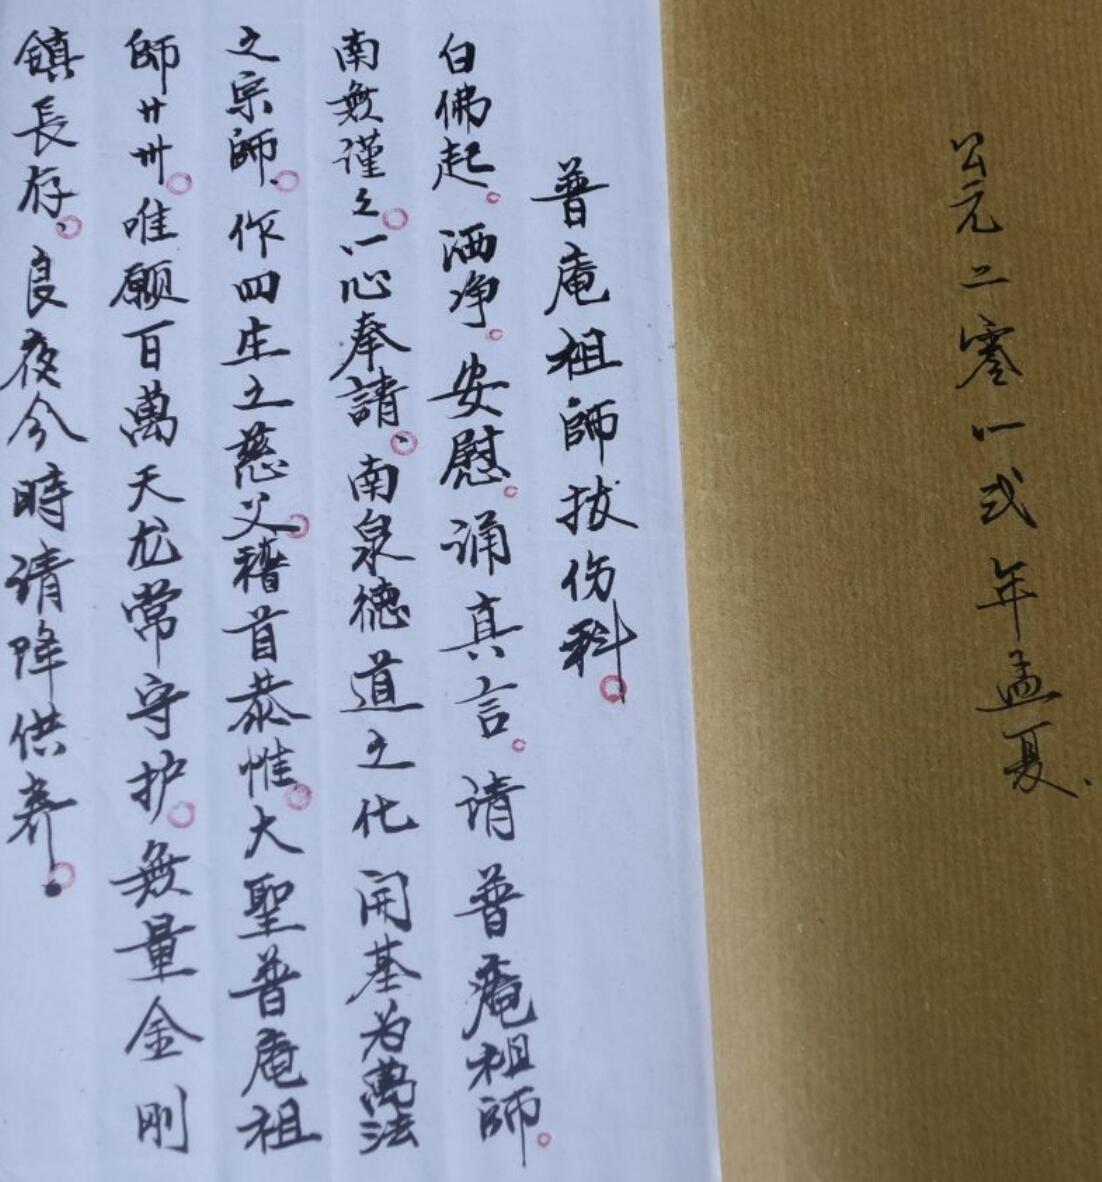 公元二零一弍年孟夏.
普庵祖師拔伤科。
白佛起。洒净。安慰。诵真言。请普庵祖師。
南無謹々。一心奉請。南泉德道之化開基为萬法
之宗師。作四生之慈父。稽首恭惟。大聖普庵祖
師廿卅。唯願百萬天龙常守护。無量金刚
鎮長存。良夜今時请降供养。